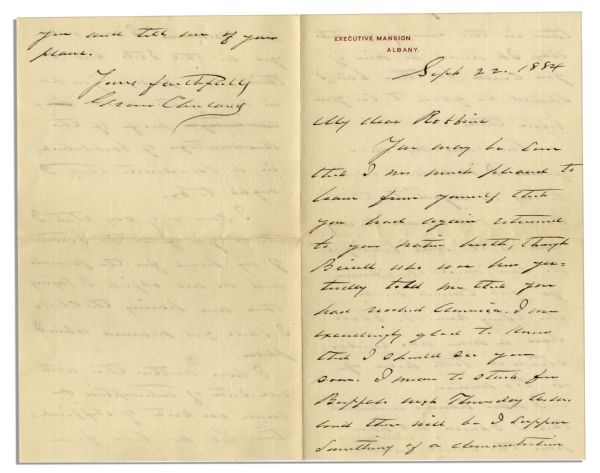 you and tell me of your
plans.
Yours faithfully
Grover Cleveland
EXECUTIVE MANSION.
ALBANY.
Sept 22. 1884
My dear Robbins
You may be sure
that I was much pleased to
learn from yourself that
you had again returned
to your native heath, though
Bissell who was here yes-
terday told me that you
had reached America. I am
exceedingly glad to know
that I should see you
soon. I mean to start for
Buffalo next Thursday
and there will be I suppose
something of a demonstration